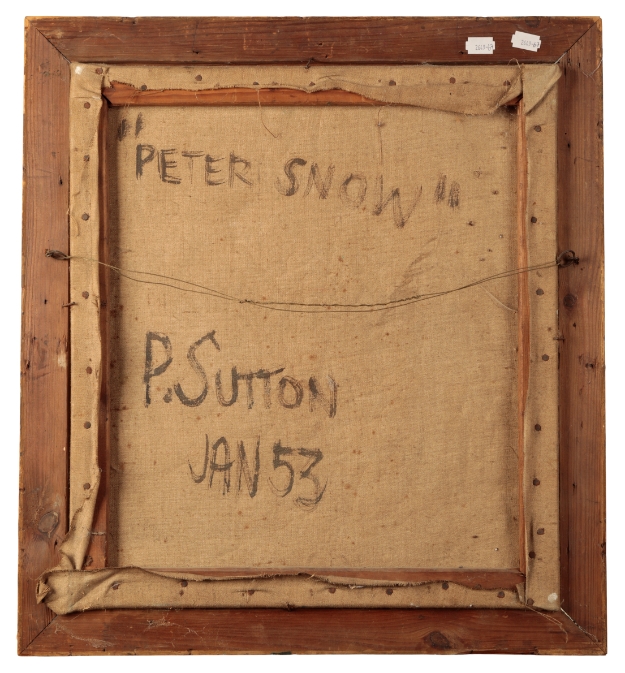 "PETER SNOW"
P. SUTTON
JAN 53